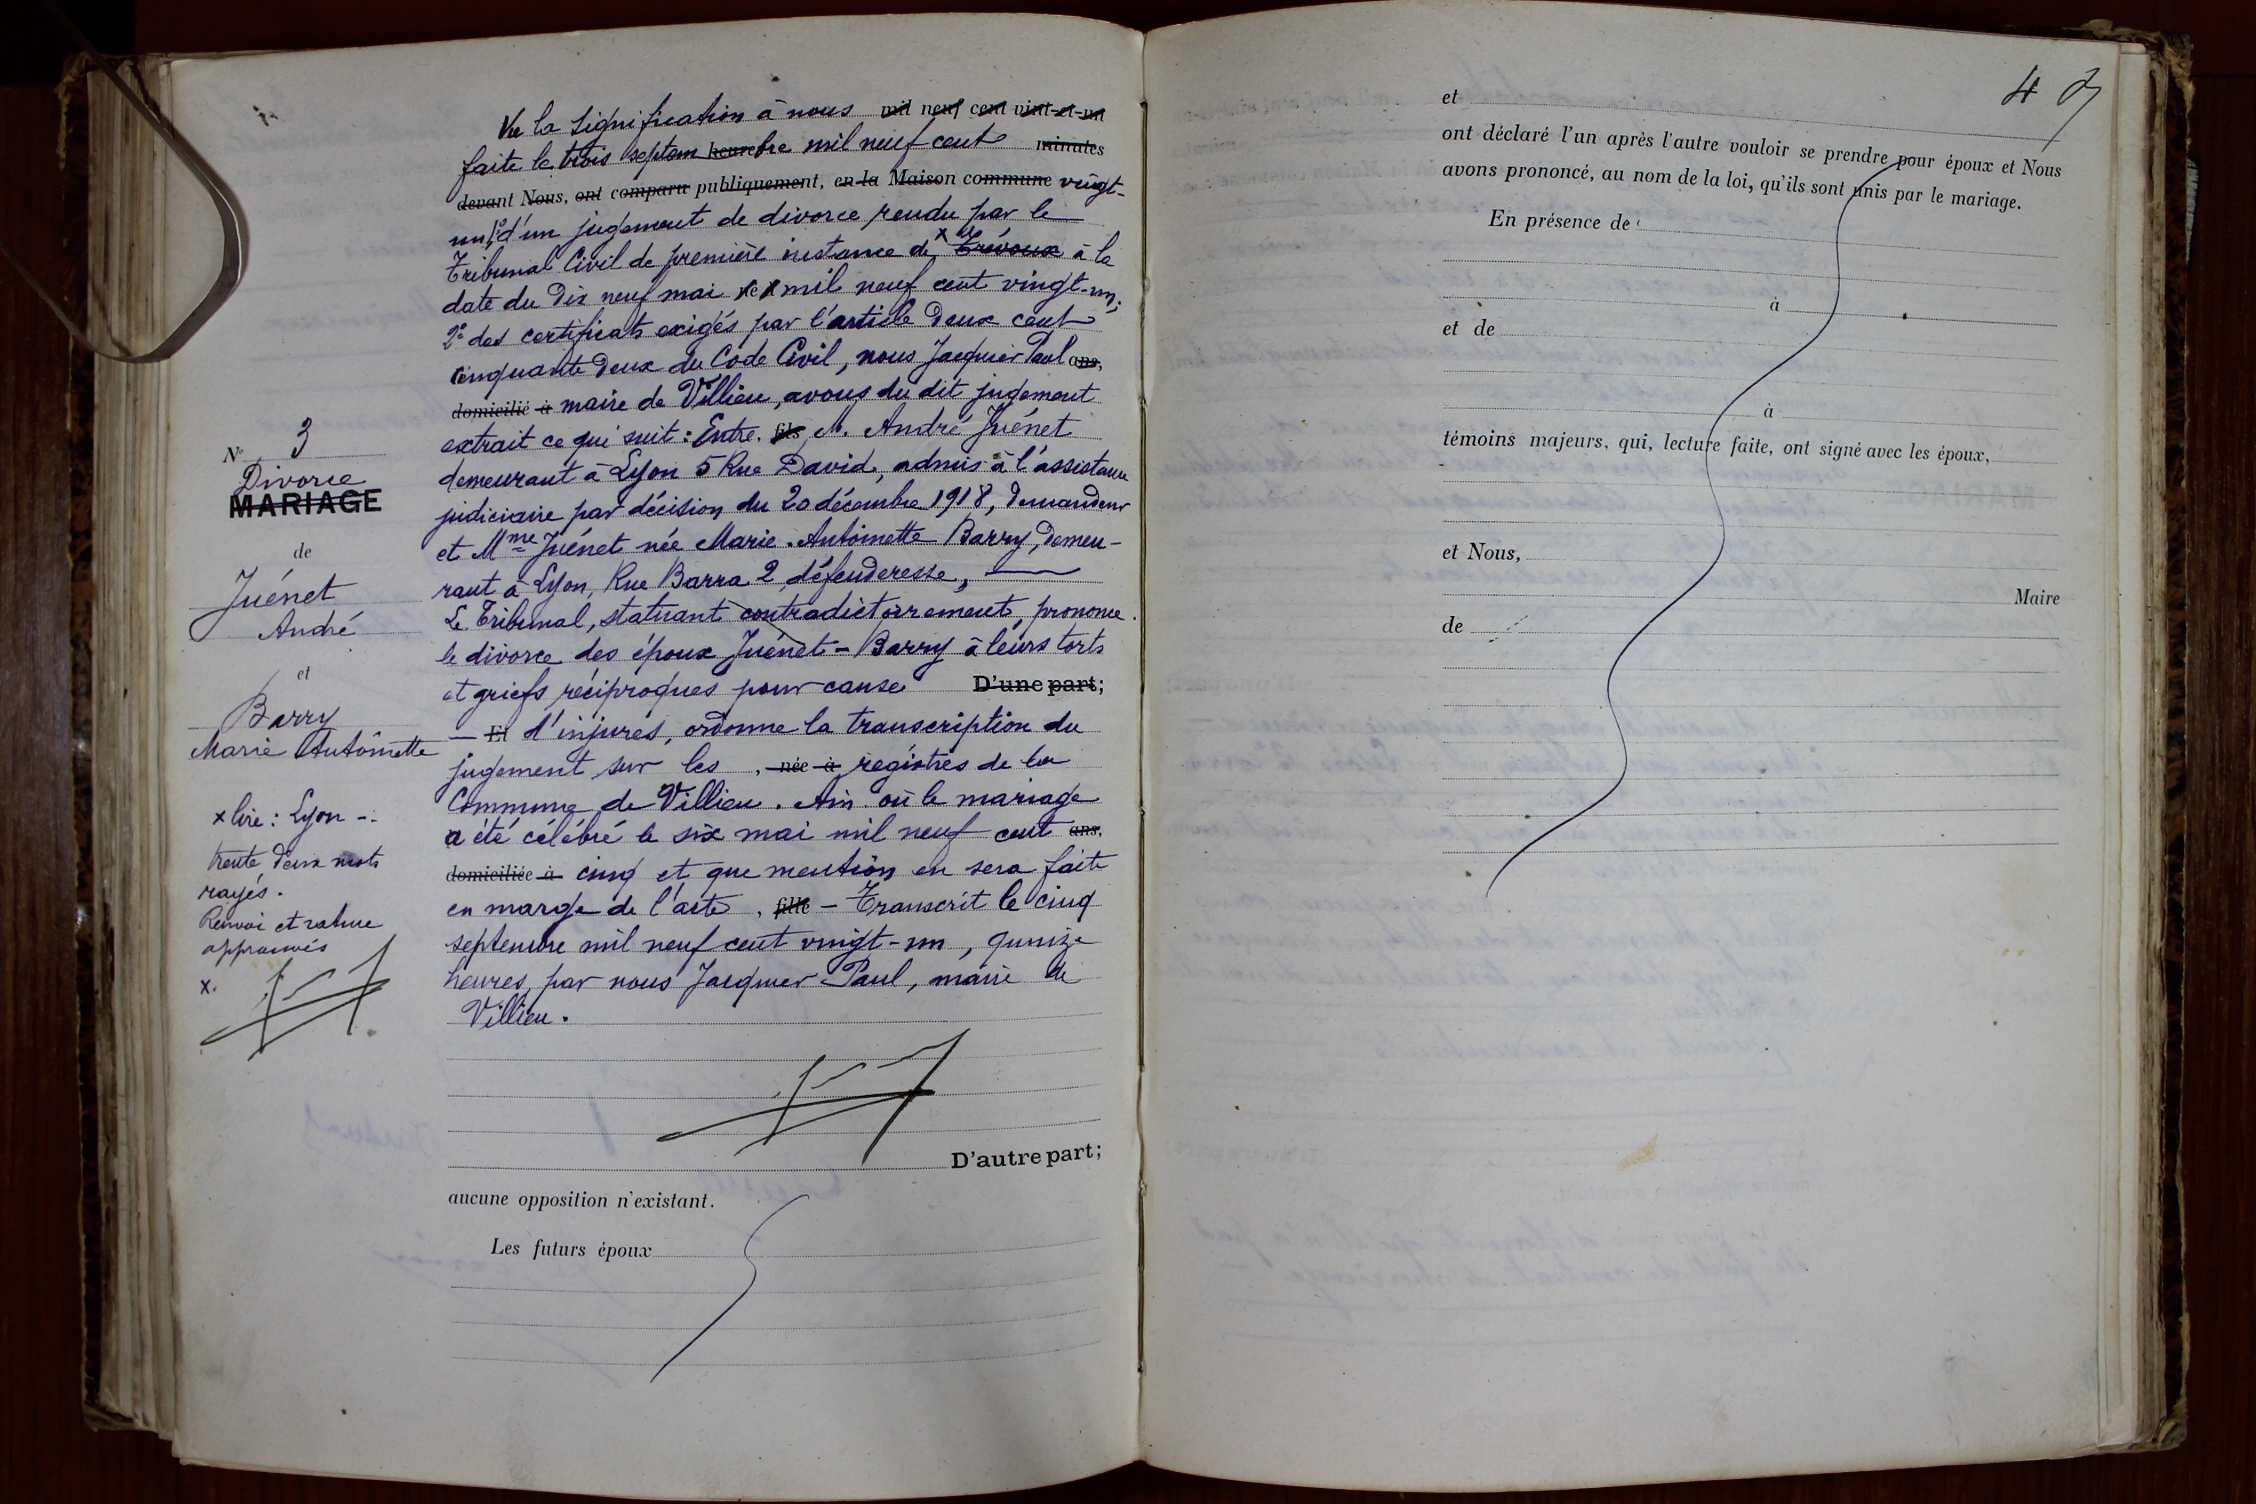 Vu la signification à nous mil neuf cent vint-et-un
faite le trois septem heurebre mil neuf cent minutes
devant Nous, ont comparu publiquement, en la Maison commune vingt-
un 1° d'un jugement de divorce rendu par le
Tribunal Civil de première instance de x Trévoux à la
date du dix neuf mai mil neuf cent vingt-un;
2° des certificats exigés par l'article deux cent
cinquante deux du Code Civil, nous Jacquier Paul ans,
domicilié à maire de Villieu, avons du dit jugement
extrait ce qui suit : Entre fils M. André Juénet
demeurant à Lyon 5 Rue David, admis à l'assistance
judiciaire par décision du 20 décembre 1918, demandeur
et Mme Juénet née Marie Antoinette Barry, demeu-
rant à Lyon, Rue Barra 2, défenderesse,
Le Tribunal, statuant contradictoirement, prononce
le divorce des époux Juénet - Barry à leurs torts
et griefs réciproques pour cause D'une part;
— Et d'injures, ordonne la transcription du
jugement sur les , née à registres de la
Commune de Villieu. Ain où le mariage
a été célébré le six mai mil neuf cent ans,
domiciliée à cinq et que mention en sera faite
en marge de l'acte , fille - Transcrit le cinq
septembre mil neuf cent vingt-un, quinze
heures, par nous Jacquier Paul, maire de
Villieu.
D'autre part;
aucune opposition n'existant.
Les futurs époux
N° 3
Divorce
MARIAGE
de
Juénet
André
et
Barry
Marie Antoinette
x lire : Lyon -.
trente deux mots
rayés.
Renvoi et rature
approuvés
x.
4
et
ont déclaré l'un après l'autre vouloir se prendre pour époux et Nous
avons prononcé, au nom de la loi, qu'ils sont unis par le mariage.
En présence de
à
et de
à
témoins majeurs, qui, lecture faite, ont signé avec les époux,
et Nous,
Maire
de